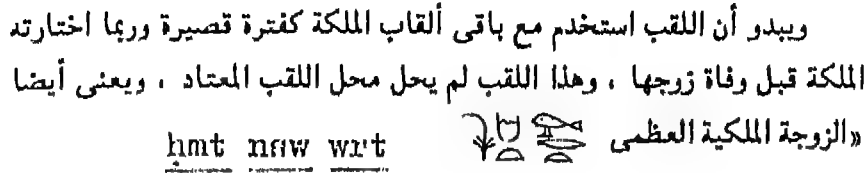 ويبدو أن اللقب استخدم مع باقى ألقاب الملكة كفترة قصيرة وربما اختارته
الملكة قبل وفاة زوجها ، وهذا اللقب لم يحل محل اللقب المعتاد ، ويعنى أيضا
«الزوجة الملكية العظمى ḥmt nsw wrt